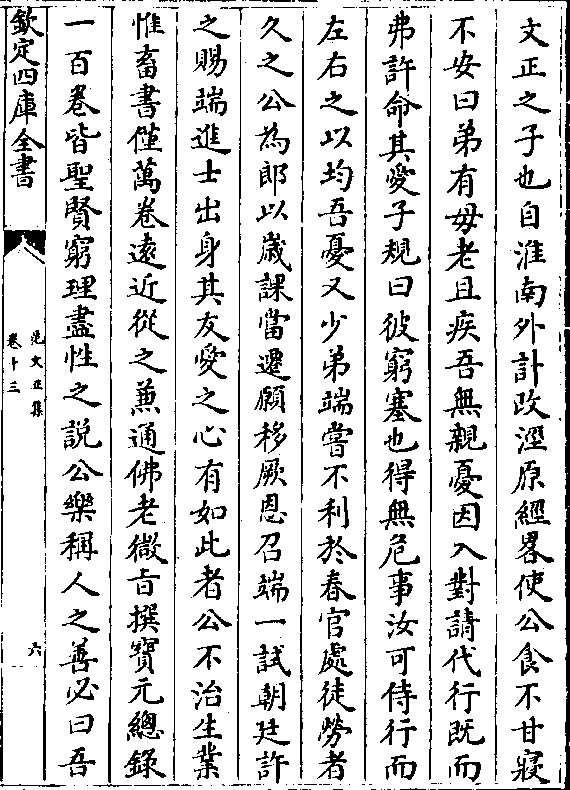 文正之子也自淮南外計改涇原經畧使公食不甘寢
不安曰弟有母老且疾吾無親憂因入對請代行既而
弗許命其愛子規曰彼窮塞也得無危事汝可侍行而
左右之以均吾憂又少弟端嘗不利於春官處徒勞者
久之公為郎以歲課當遷願移厥恩召端一試朝廷許
之賜端進士出身其友愛之心有如此者公不治生業
惟畜書僅萬卷遠近從之兼通佛老微旨撰寶元總錄
一百卷皆聖賢窮理盡性之說公樂稱人之善必曰吾
欽定四庫全書
范文正集
卷十三
六